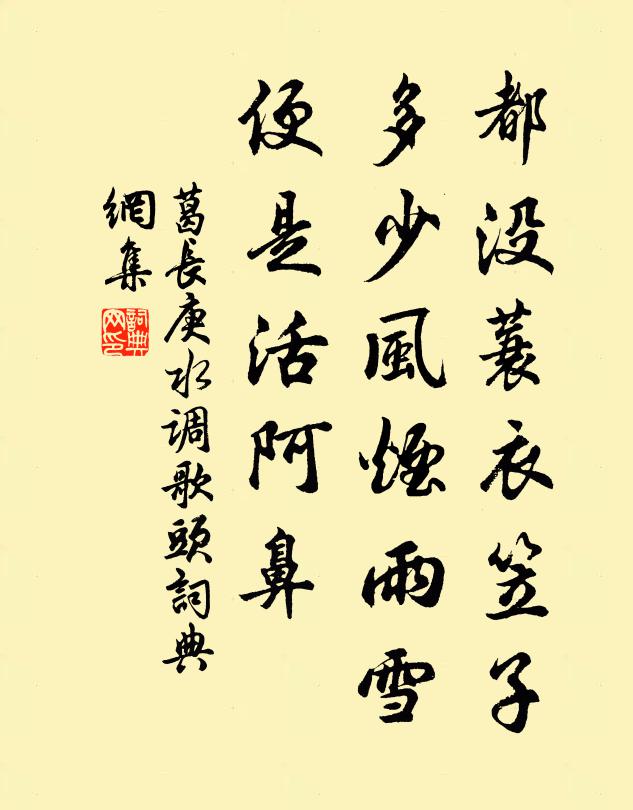 都没蓑衣笠子
多少風煙雨雪
便是活阿鼻
葛長庚水调歌頭詞典
網集
詞典网印